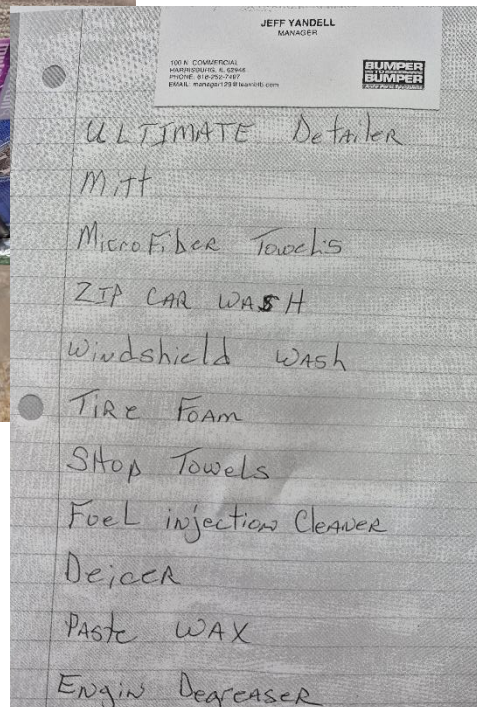 JEFF YANDELL
MANAGER
100 N. COMMERCIAL
HARRISBURG, IL 62946
PHONE: 618-252-7497
EMAIL: manager129@teambtb.com
BUMPER
TO
BUMPER
Auto Parts Specialists
ULTIMATE Detailer
Mitt
MicroFiber Towels
ZIP CAR WASH
Windshield WAsh
TiRe FoAM
SHop Towels
Fuel injection CleANeR
DeiceR
PASte WAX
ENgiN DegreaseR